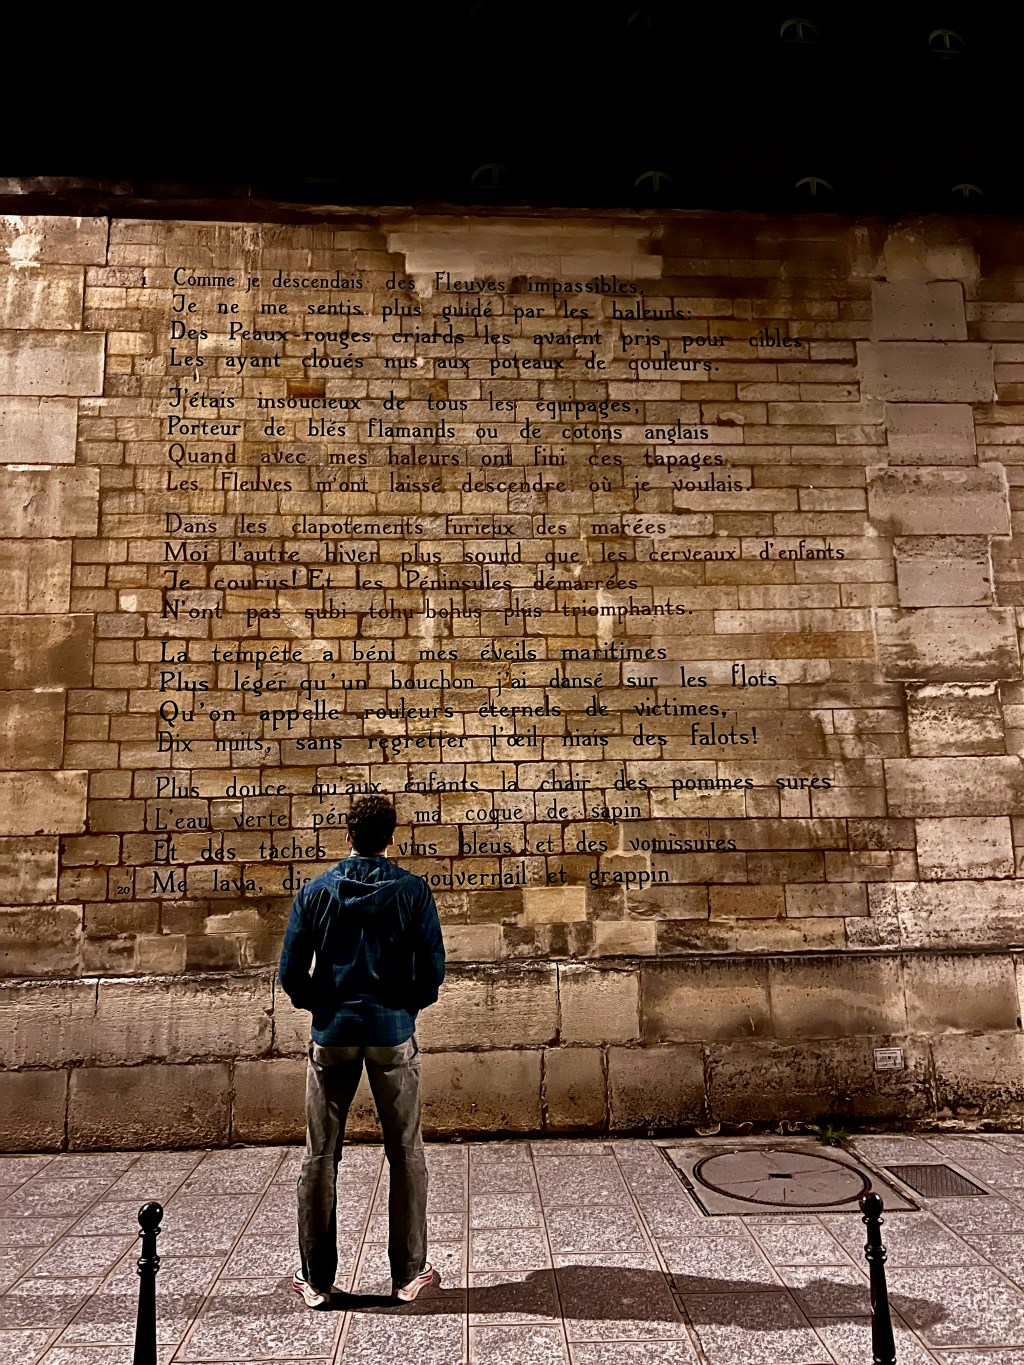 1 Comme je descendais des Fleuves impassibles,
Je ne me sentis plus guidé par les haleurs:
Des Peaux-rouges criards les avaient pris pour cibles
Les ayant cloués nus aux poteaux de couleurs.
J'étais insoucieux de tous les équipages,
Porteur de blés flamands ou de cotons anglais
Quand avec mes haleurs ont fini ces tapages
Les Fleuves m'ont laissé descendre où je voulais.
Dans les clapotements furieux des marées
Moi l'autre hiver plus sourd que les cerveaux d'enfants
Je courus! Et les Péninsules démarrées
N'ont pas subi tohu-bohus plus triomphants.
La tempête a béni mes éveils maritimes
Plus léger qu'un bouchon j'ai dansé sur les flots
Qu'on appelle rouleurs éternels de victimes,
Dix nuits, sans regretter l'œil niais des falots!
Plus douce qu'aux enfants la chair des pommes sures
L'eau verte pén ma coque de sapin
Et des taches vins bleus et des vomissures
20 Me lava, dis gouvernail et grappin